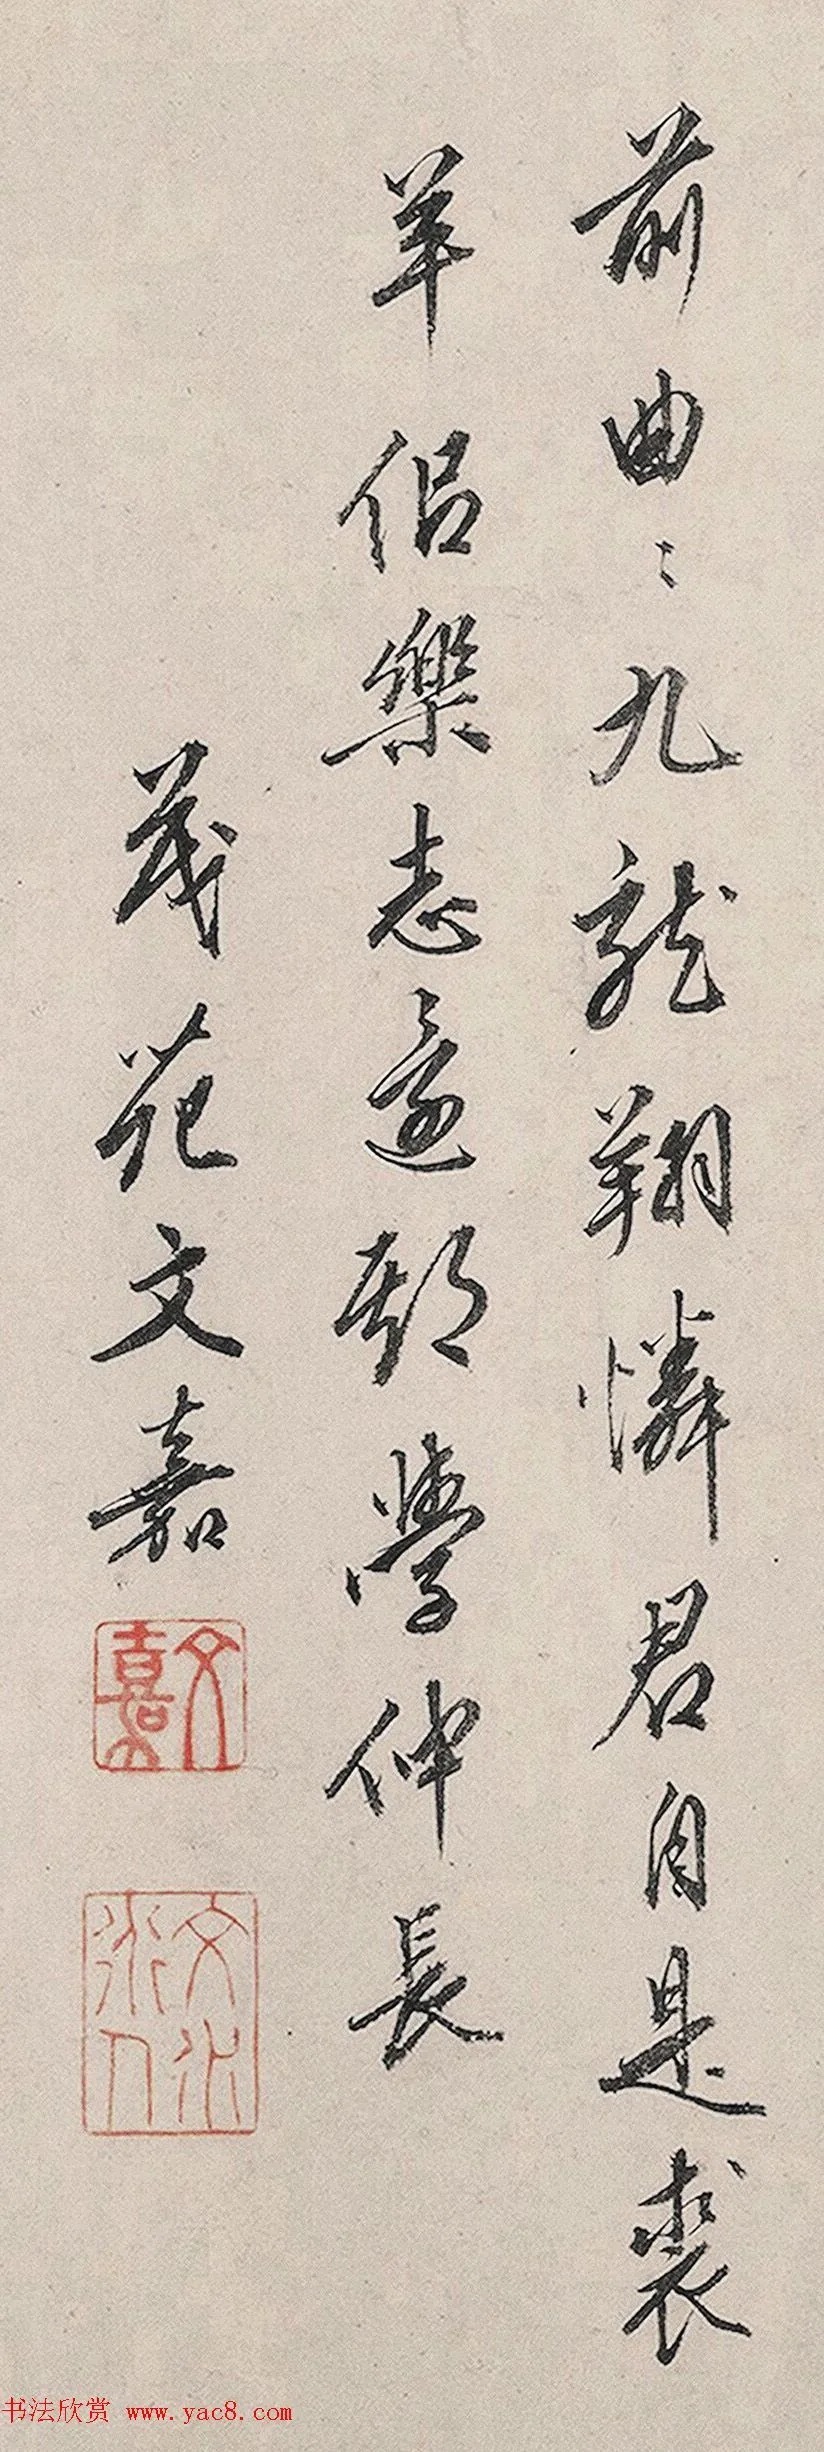 前曲〻九龍翔憐君自是裘
羊侣樂志還期學仲長
茂苑文嘉
文嘉
文水
道人
书法欣赏 www.yac8.com